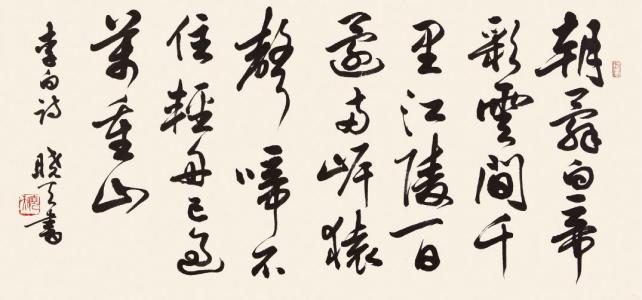 朝辭白帝
彩雲間千
里江陵一日
還兩岸猿
聲啼不
住輕舟已過
萬重山
李白诗 曉天書